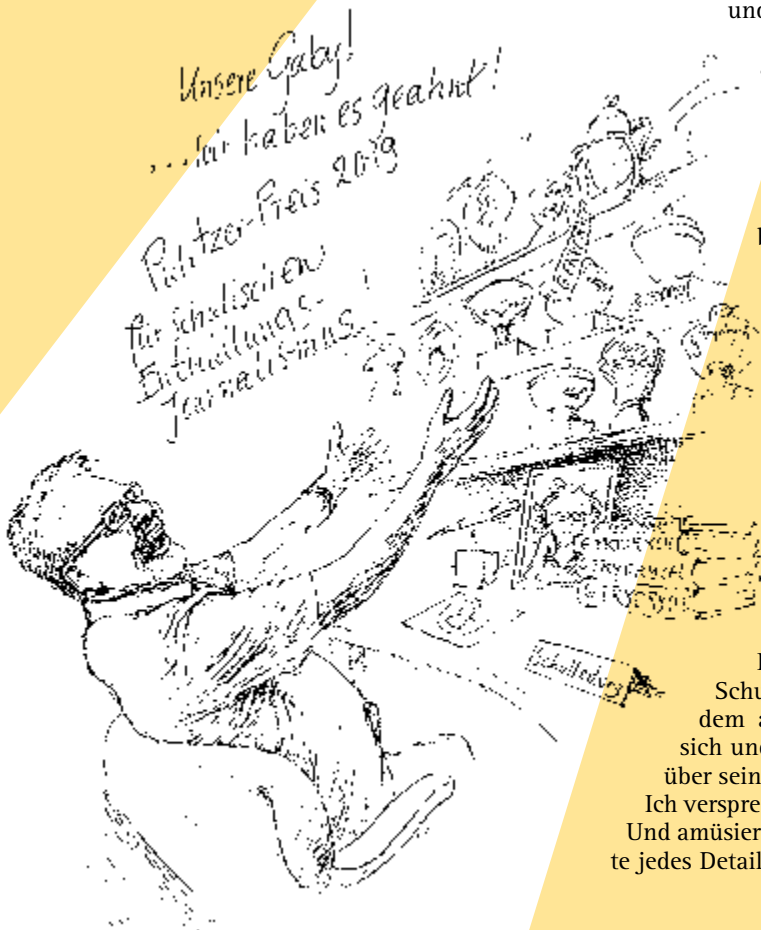 und
Unsere Gaby!
...wir haben es geahnt!
Pulitzer-Preis 2019
für schulischen
Enthüllungs-
Journalismus!
b
Schu
dem a
sich und
über sein
Ich verspre
Und amüsier
te jedes Detail